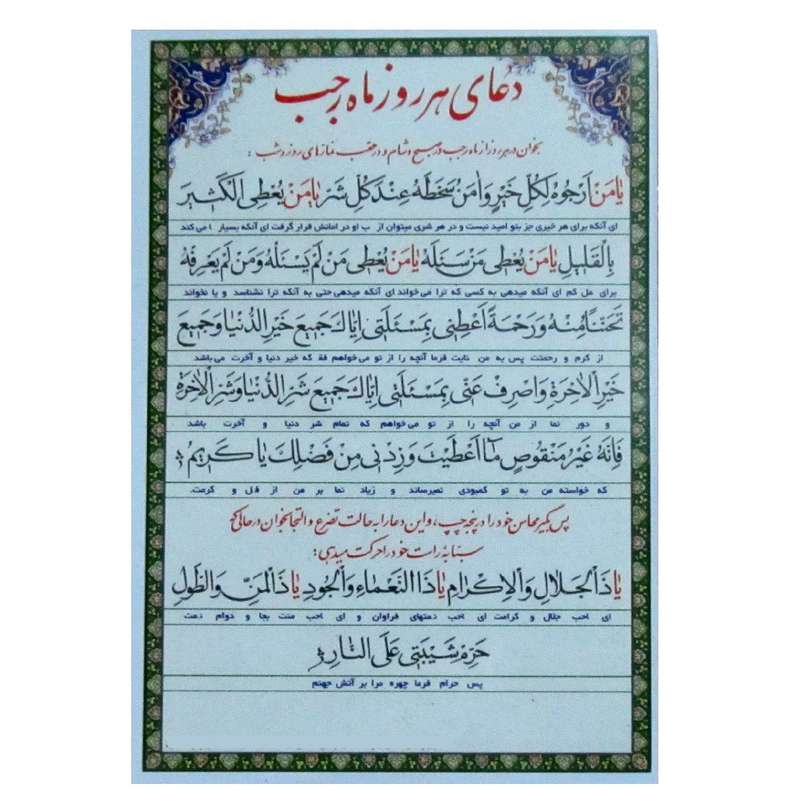 دعای هر روز ماه رجب
بخوان در هر روز از ماه رجب در صبح و شام و در عقب نمازهای روز و شب :
یا مَنْ اَرْجُوهُ لِکُلِّ خَیْرٍ وَ امَنُ سَخَطَهُ عِنْدَ کُلِّ شَرٍّ یا مَنْ یُعْطِی الْکَثیرَ
ای آنکه برای هر خیری جز بتو امید نیست و در هر شری میتوان از ب او در امانش قرار گرفت ای آنکه بسیار ا می کند
بِالْقَلیلِ یا مَنْ یُعْطی مَنْ سَئَلَهُ یا مَنْ یُعْطی مَنْ لَمْ یَسْئَلْهُ وَ مَنْ لَمْ یَعْرِفْهُ
برای مل کم ای آنکه میدهی به کسی که ترا می خواند ای آنکه میدهی حتی به آنکه ترا نشناسد و یا نخواند
تَحَنُّناً مِنْهُ وَ رَحْمَةً اَعْطِنی بِمَسْئَلَتی اِیّاکَ جَمیعَ خَیْرِ الدُّنْیا وَ جَمیعَ
از کرم و رحمتت پس به من نابت فرما آنچه را از تو می خواهم فقـ که خیر دنیا و آخرت می باشد
خَیْرِ الْاخِرَةِ وَ اصْرِفْ عَنّی بِمَسْئَلَتی اِیّاکَ جَمیعَ شَرِّ الدُّنْیا وَ شَرِّ الْاخِرَةِ
و دور نما از من آنچه را از تو می خواهم که تمام شر دنیا و آخرت باشد
فَاِنَّهُ غَیْرُ مَنْقُوصٍ ما اَعْطَیْتَ وَ زِدْنی مِنْ فَضْلِکَ یا کَریمُ
که خواسته من به تو کمبودی نمیرساند و زیاد نما بر من از فـل و کرمت.
پس بگیر محاسن خود را در پنجه چپ، و این دعا را به حالت تضرع و التجا بخوان در حالی که
سبابه راست خود را حرکت میدهی :
یا ذَا الْجَلالِ وَ الْاِکْرامِ یا ذَا النَّعْماءِ وَ الْجُودِ یا ذَا الْمَنِّ وَ الطَّوْلِ
ای احب جلال و کرامت ای احب نعمتهای فراوان و ای احب منت بجا و دوام نعمت
حَرِّمْ شَیْبَتی عَلَی النّارِ
پس حرام فرما چهره مرا بر آتش جهنم